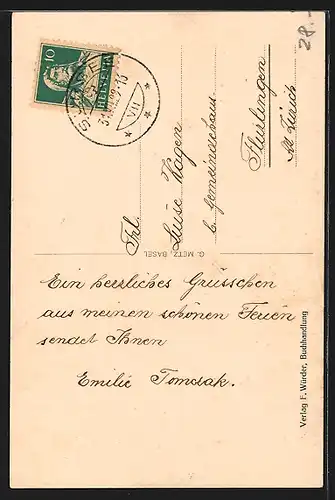 28.-
10
HELVETIA
VII
Frl.
Luise Hagen
b. Gemeindehaus
Flurlingen
Kt. Zürich
G. METZ, BASEL
Ein herzliches Grüsschen
aus meinen schönen Ferien
sendet Ihnen
Emilie Tomczak.
Verlag F. Würder, Buchhandlung